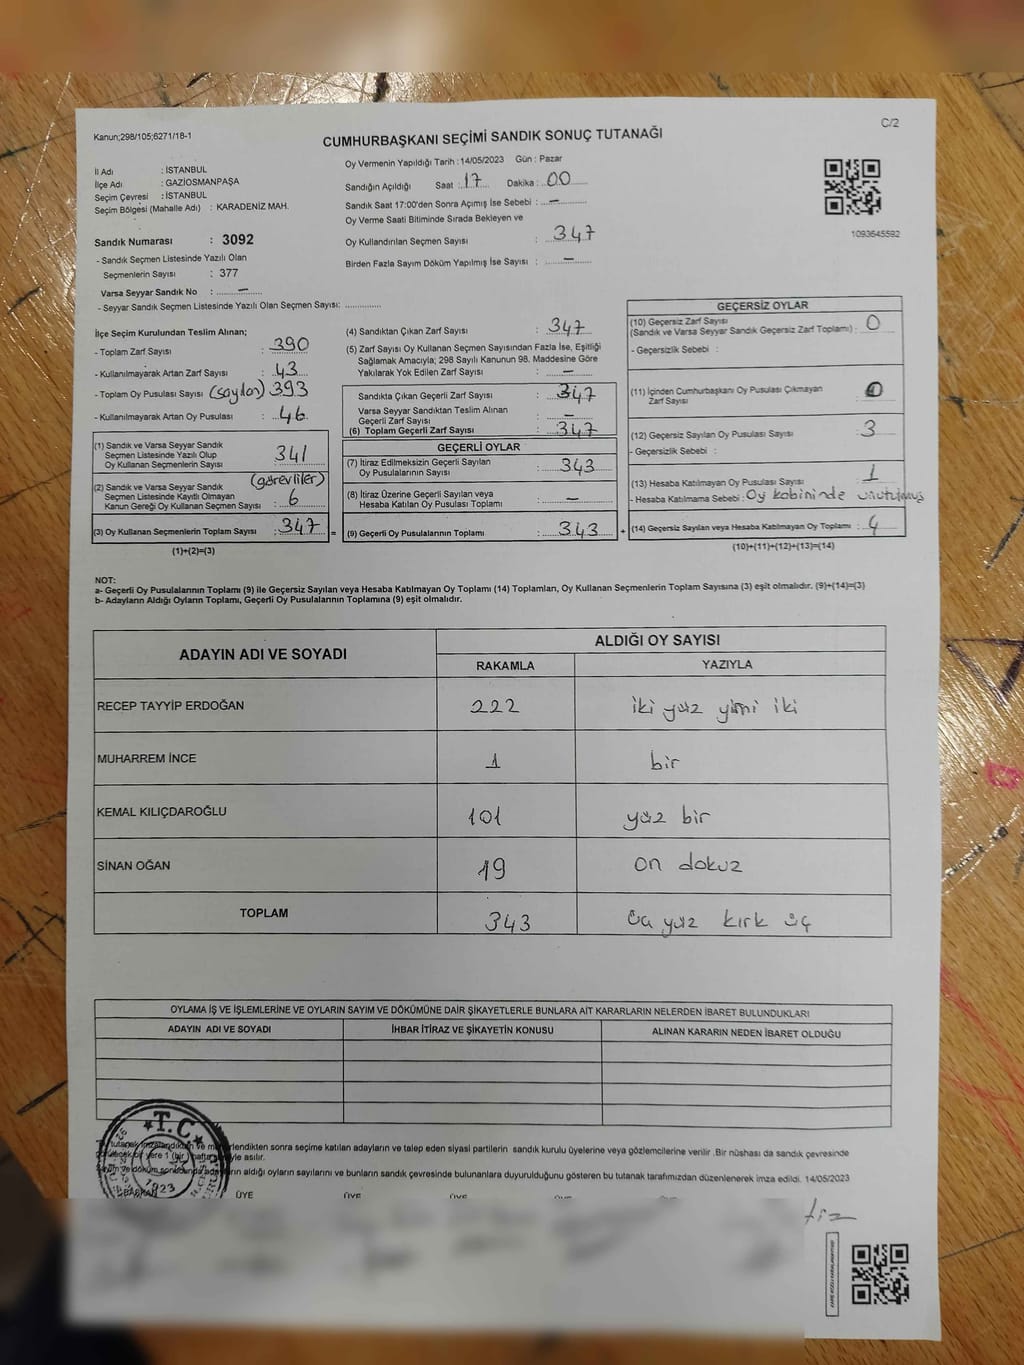 Kanun;298/105;6271/18-1
C/2
CUMHURBAŞKANI SEÇİMİ SANDIK SONUÇ TUTANAĞI
İl Adı : İSTANBUL
İlçe Adı : GAZİOSMANPAŞA
Seçim Çevresi : İSTANBUL
Seçim Bölgesi (Mahalle Adı) : KARADENİZ MAH.
Sandık Numarası : 3092
- Sandık Seçmen Listesinde Yazılı Olan
Seçmenlerin Sayısı : 377
Varsa Seyyar Sandık No : –
- Seyyar Sandık Seçmen Listesinde Yazılı Olan Seçmen Sayısı: ............
Oy Vermenin Yapıldığı Tarih : 14/05/2023 Gün : Pazar
Sandığın Açıldığı Saat : 17 Dakika : 00
Sandık Saat 17:00'den Sonra Açımış İse Sebebi : –
Oy Verme Saati Bitiminde Sırada Bekleyen ve
Oy Kullandırılan Seçmen Sayısı : 347
Birden Fazla Sayım Döküm Yapılmış İse Sayısı : –
1093645592
İlçe Seçim Kurulundan Teslim Alınan;
- Toplam Zarf Sayısı : 390
- Kullanılmayarak Artan Zarf Sayısı : 43
- Toplam Oy Pusulası Sayısı (sayılan) 393
- Kullanılmayarak Artan Oy Pusulası : 46
(1) Sandık ve Varsa Seyyar Sandık
Seçmen Listesinde Yazılı Olup
Oy Kullanan Seçmenlerin Sayısı 341
(2) Sandık ve Varsa Seyyar Sandık (görevliler)
Seçmen Listesinde Kayıtlı Olmayan
Kanun Gereği Oy Kullanan Seçmen Sayısı : 6
(3) Oy Kullanan Seçmenlerin Toplam Sayısı : 347 =
(1)+(2)=(3)
(4) Sandıktan Çıkan Zarf Sayısı : 347
(5) Zarf Sayısı Oy Kullanan Seçmen Sayısından Fazla İse, Eşitliği
Sağlamak Amacıyla; 298 Sayılı Kanunun 98. Maddesine Göre
Yakılarak Yok Edilen Zarf Sayısı : –
Sandıkta Çıkan Geçerli Zarf Sayısı : 347
Varsa Seyyar Sandıktan Teslim Alınan
Geçerli Zarf Sayısı : –
(6) Toplam Geçerli Zarf Sayısı : 347
GEÇERLİ OYLAR
(7) İtiraz Edilmeksizin Geçerli Sayılan
Oy Pusulalarının Sayısı : 343
(8) İtiraz Üzerine Geçerli Sayılan veya
Hesaba Katılan Oy Pusulası Toplamı : –
(9) Geçerli Oy Pusulalarının Toplamı : 343 +
GEÇERSİZ OYLAR
(10) Geçersiz Zarf Sayısı
(Sandık ve Varsa Seyyar Sandık Geçersiz Zarf Toplamı) : 0
- Geçersizlik Sebebi :
(11) İçinden Cumhurbaşkanı Oy Pusulası Çıkmayan
Zarf Sayısı : 0
(12) Geçersiz Sayılan Oy Pusulası Sayısı : 3
- Geçersizlik Sebebi :
(13) Hesaba Katılmayan Oy Pusulası Sayısı : 1
- Hesaba Katılmama Sebebi : Oy kabininde unutulmuş
(14) Geçersiz Sayılan veya Hesaba Katılmayan Oy Toplamı : 4
(10)+(11)+(12)+(13)=(14)
NOT:
a- Geçerli Oy Pusulalarının Toplamı (9) ile Geçersiz Sayılan veya Hesaba Katılmayan Oy Toplamı (14) Toplamları, Oy Kullanan Seçmenlerin Toplam Sayısına (3) eşit olmalıdır. (9)+(14)=(3)
b- Adayların Aldığı Oyların Toplamı, Geçerli Oy Pusulalarının Toplamına (9) eşit olmalıdır.
ADAYIN ADI VE SOYADI
ALDIĞI OY SAYISI
RAKAMLA YAZIYLA
RECEP TAYYİP ERDOĞAN 222 iki yüz yirmi iki
MUHARREM İNCE 1 bir
KEMAL KILIÇDAROĞLU 101 yüz bir
SİNAN OĞAN 19 on dokuz
TOPLAM 343 yüz kırk üç
OYLAMA İŞ VE İŞLEMLERİNE VE OYLARIN SAYIM VE DÖKÜMÜNE DAİR ŞİKAYETLERLE BUNLARA AİT KARARLARIN NELERDEN İBARET BULUNDUKLARI
ADAYIN ADI VE SOYADI İHBAR İTİRAZ VE ŞİKAYETİN KONUSU ALINAN KARARIN NEDEN İBARET OLDUĞU
T.C.
1923
sonra seçime katılan adayların ve talep eden siyasi partilerin sandık kurulu üyelerine veya gözlemcilerine verilir .Bir nüshası da sandık çevresinde
yere 1 (bir) asılır.
aldığı oyların sayılarını ve bunların sandık çevresinde bulunanlara duyurulduğunu gösteren bu tutanak tarafımızdan düzenlenerek imza edildi. 14/05/2023
BAŞKAN ÜYE ÜYE ÜYE